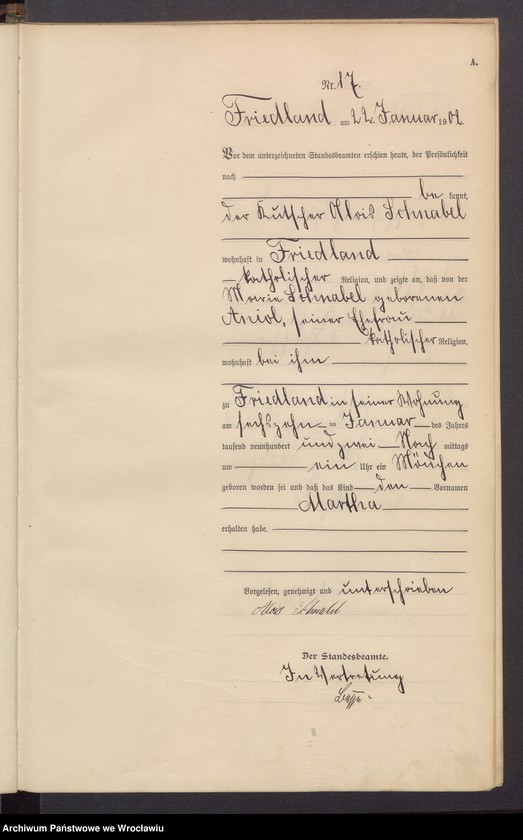 A.
Nr. 17.
Friedland am 22. Januar 1902.
Vor dem unterzeichneten Standesbeamten erschien heute, der Persönlichkeit
nach
be kannt,
der Kutscher Alois Schnabel
wohnhaft in Friedland
katholischer Religion, und zeigte an, daß von der
Marie Schnabel geborenen
Aniol, seiner Ehefrau
katholischer Religion,
wohnhaft bei ihm
zu Friedland in seiner Wohnung
am sechszehn ten Januar des Jahres
tausend neunhundert und zwei Nach mittags
um ein Uhr ein Mädchen
geboren worden sei und daß das Kind den Vornamen
Martha
erhalten habe.
Vorgelesen, genehmigt und unterschrieben
Alois Schnabel
Der Standesbeamte.
In Vertretung
Archiwum Państwowe we Wrocławiu